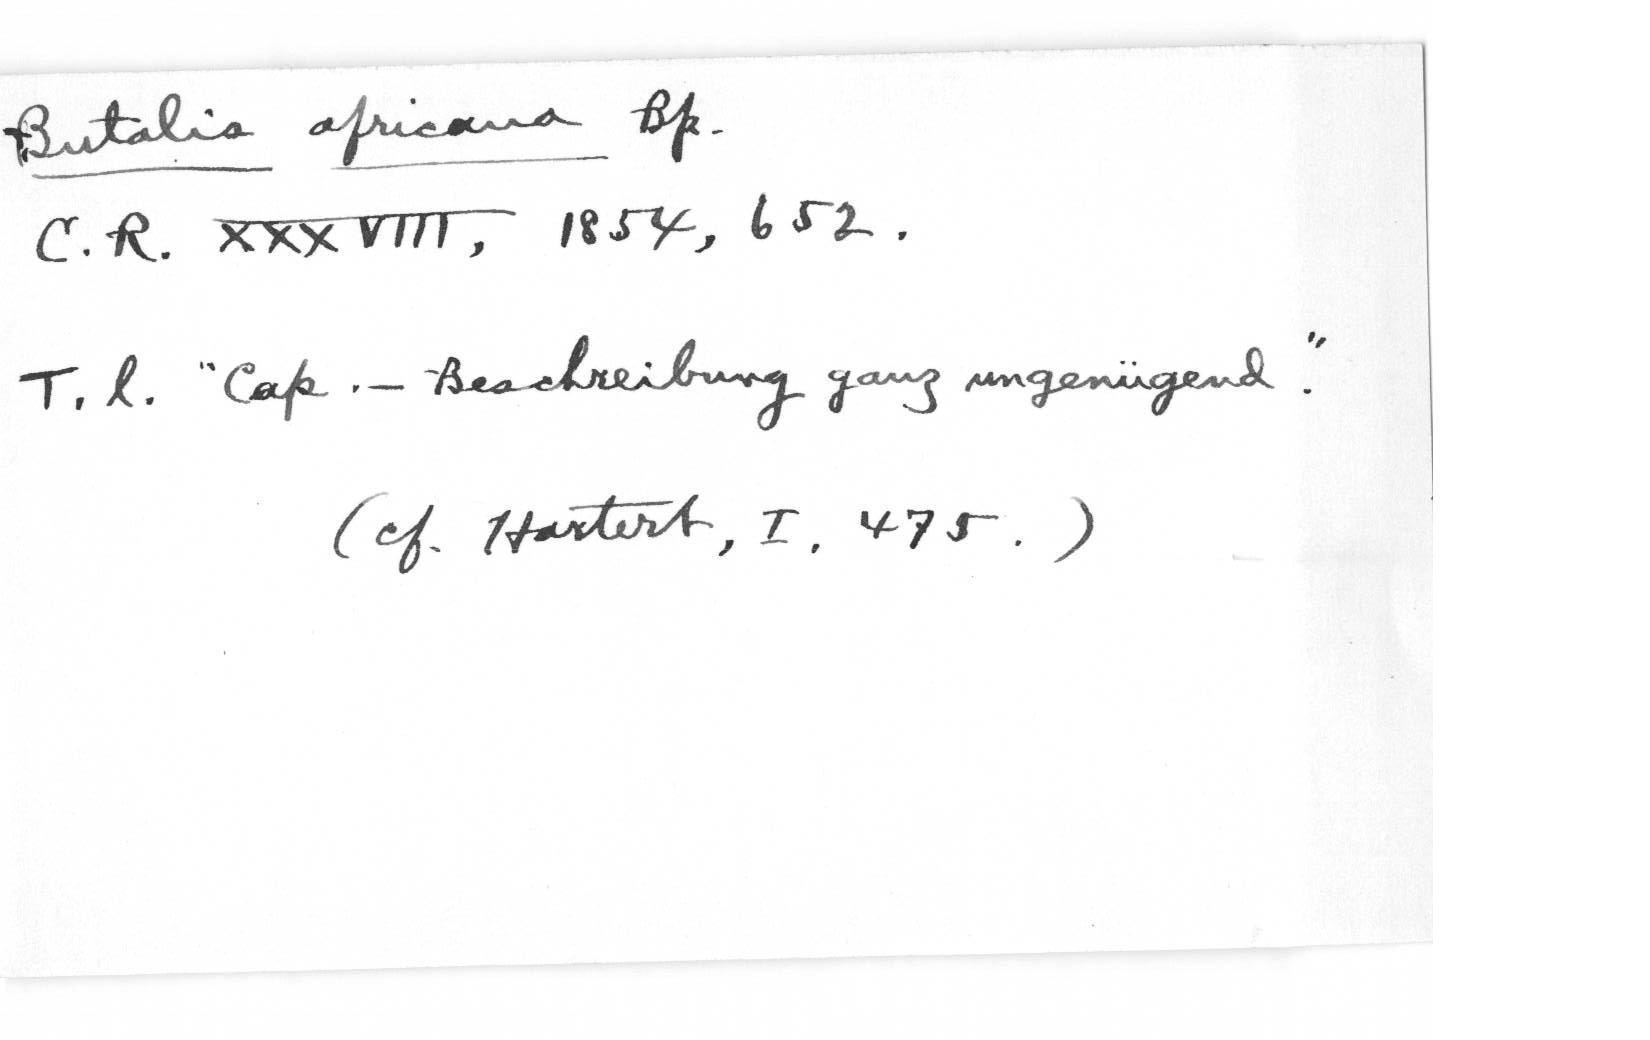 Butalis africana Bp.
C. R. XXXVIII, 1854, 652.
T. l. "Cap. — Beschreibung ganz ungenügend."
(cf. Hartert, I, 475.)